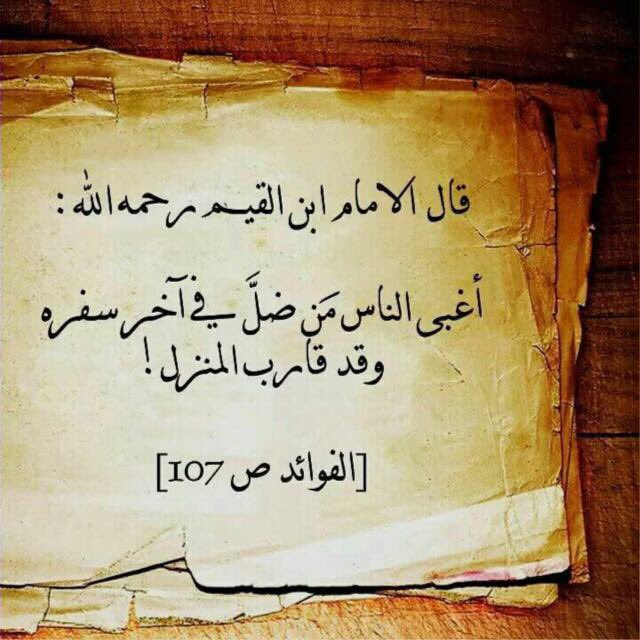 قال الامام ابن القيم رحمه الله :
أغبى الناس مَن ضلَّ في آخر سفره
وقد قارب المنزل !
[الفوائد ص 107]